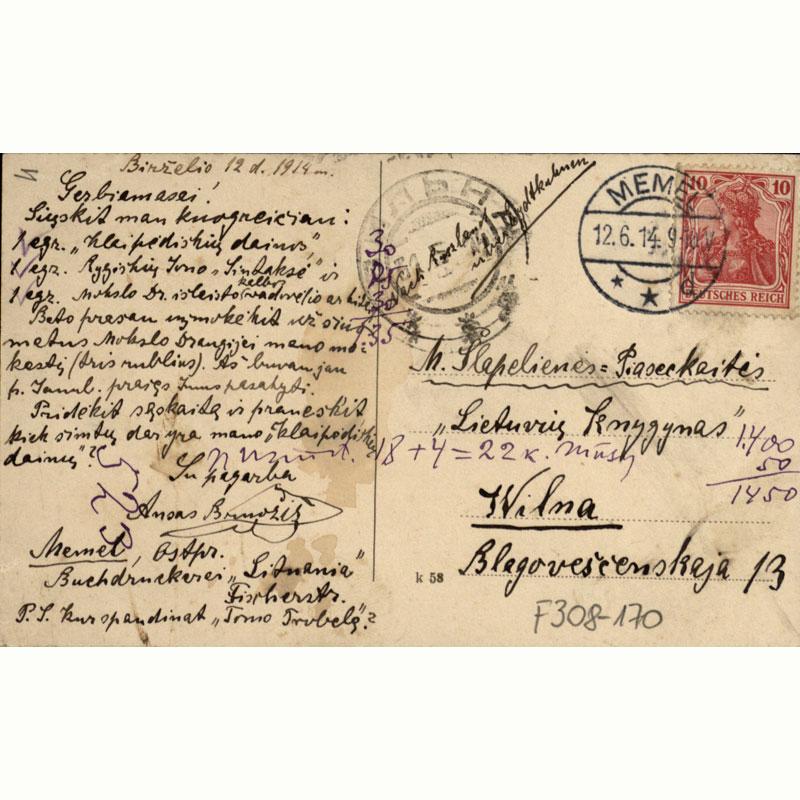 Birželio 12 d. 1914 m.
Gerbiamasei!
Siųskit man kuogreičiau:
1 egz. „Klaipėdiškių dainos"
1 egz. Rygiškių Jono „Sintaksė" ir
kalbos
1 egz. Mokslo Dr. išleisto vadovėlio
Beto prašau užmokėkit už šiuos
metus Mokslo Draugijei mano mo-
kestį (tris rublius). Aš buvau jau
p. Jaml. prašęs Jums pasakyti.
Pridėkit sąskaitą ir praneškit
kiek šimtų dar yra mano „Klaipėdiškių
dainų"?
Su pagarba
Ansas Bruožis
Memel, Ostpr.
Buchdruckerei „Lituania"
Fischerstr.
P.S. Kur spaudinat „Tomo Trobelę"?
30
1.35
18 + 4 = 22 k. mūsų
Nach Russland
über Eydtkuhnen
MEMEL
12.6.14.9
d
10 10
DEUTSCHES REICH
M. Šlapelienės=Piaseckaitės
„Lietuvių Knygynas"
Wilna
Blagoveščenskaja 13
1.400
50
1450
k 58
F308-170